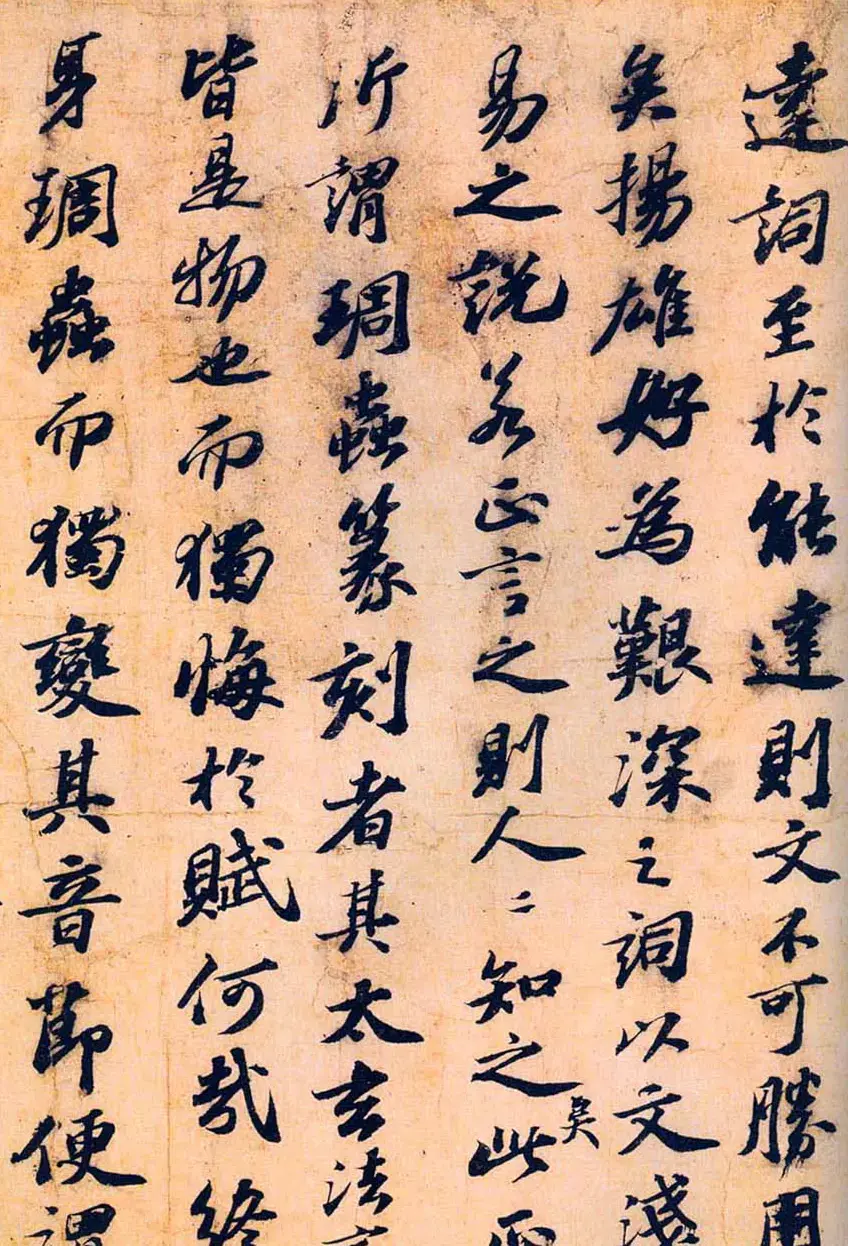 達詞至於能達則文不可勝用
矣揚雄好為艱深之詞以文淺
易之說若正言之則人〻知之矣此正
所謂琱蟲篆刻者其太玄法
皆是物也而獨悔於賦何哉終
身琱蟲而獨變其音節便謂